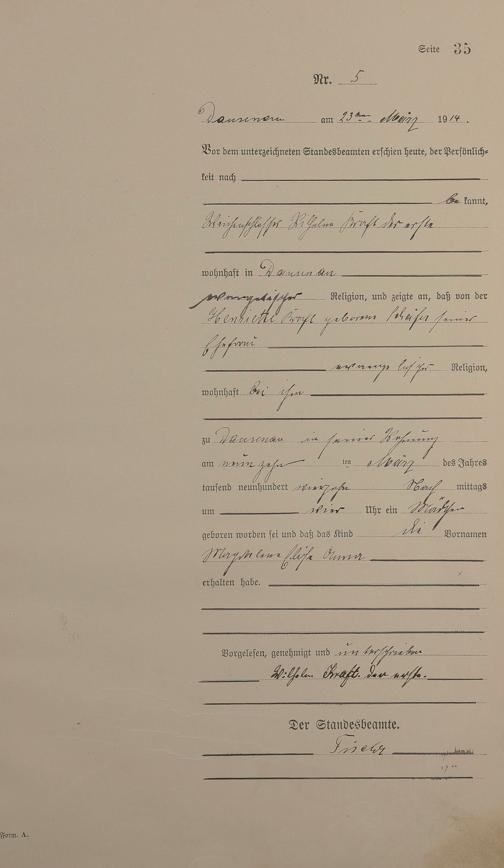 Seite 35
Nr. 5
Dausenau am 23ten März 1914.
Vor dem unterzeichneten Standesbeamten erschien heute, der Persönlich-
keit nach
be kannt,
Weichenschlosser Wilhelm Kraft der erste
wohnhaft in Dausenau
evangelischer Religion, und zeigte an, daß von der
Henriette Kraft geborene Schäfer seiner
Ehefrau
evangelischer Religion,
wohnhaft bei ihm
zu Dausenau in seiner Wohnung
am neunzehn ten März des Jahres
tausend neunhundert vierzehn Nach mittags
um vier Uhr ein Mädchen
geboren worden sei und daß das Kind die Vornamen
Magdalene Elise Anna
erhalten habe.
Vorgelesen, genehmigt und unterschrieben
Wilhelm Kraft der erste.
Der Standesbeamte.
Form. A.